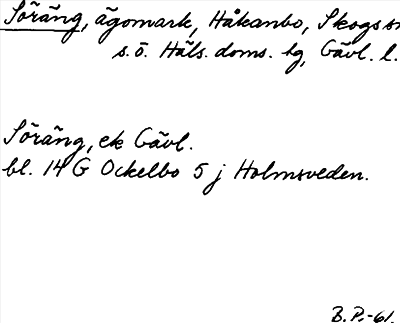 Söräng, ägomark, Håkanbo, Skogs sn
s.ö. Häls. doms. hg, Gävl. l.
Söräng, ek Gävl.
bl. 14 G Ockelbo 5 j Holmsveden.
B.P.-61.